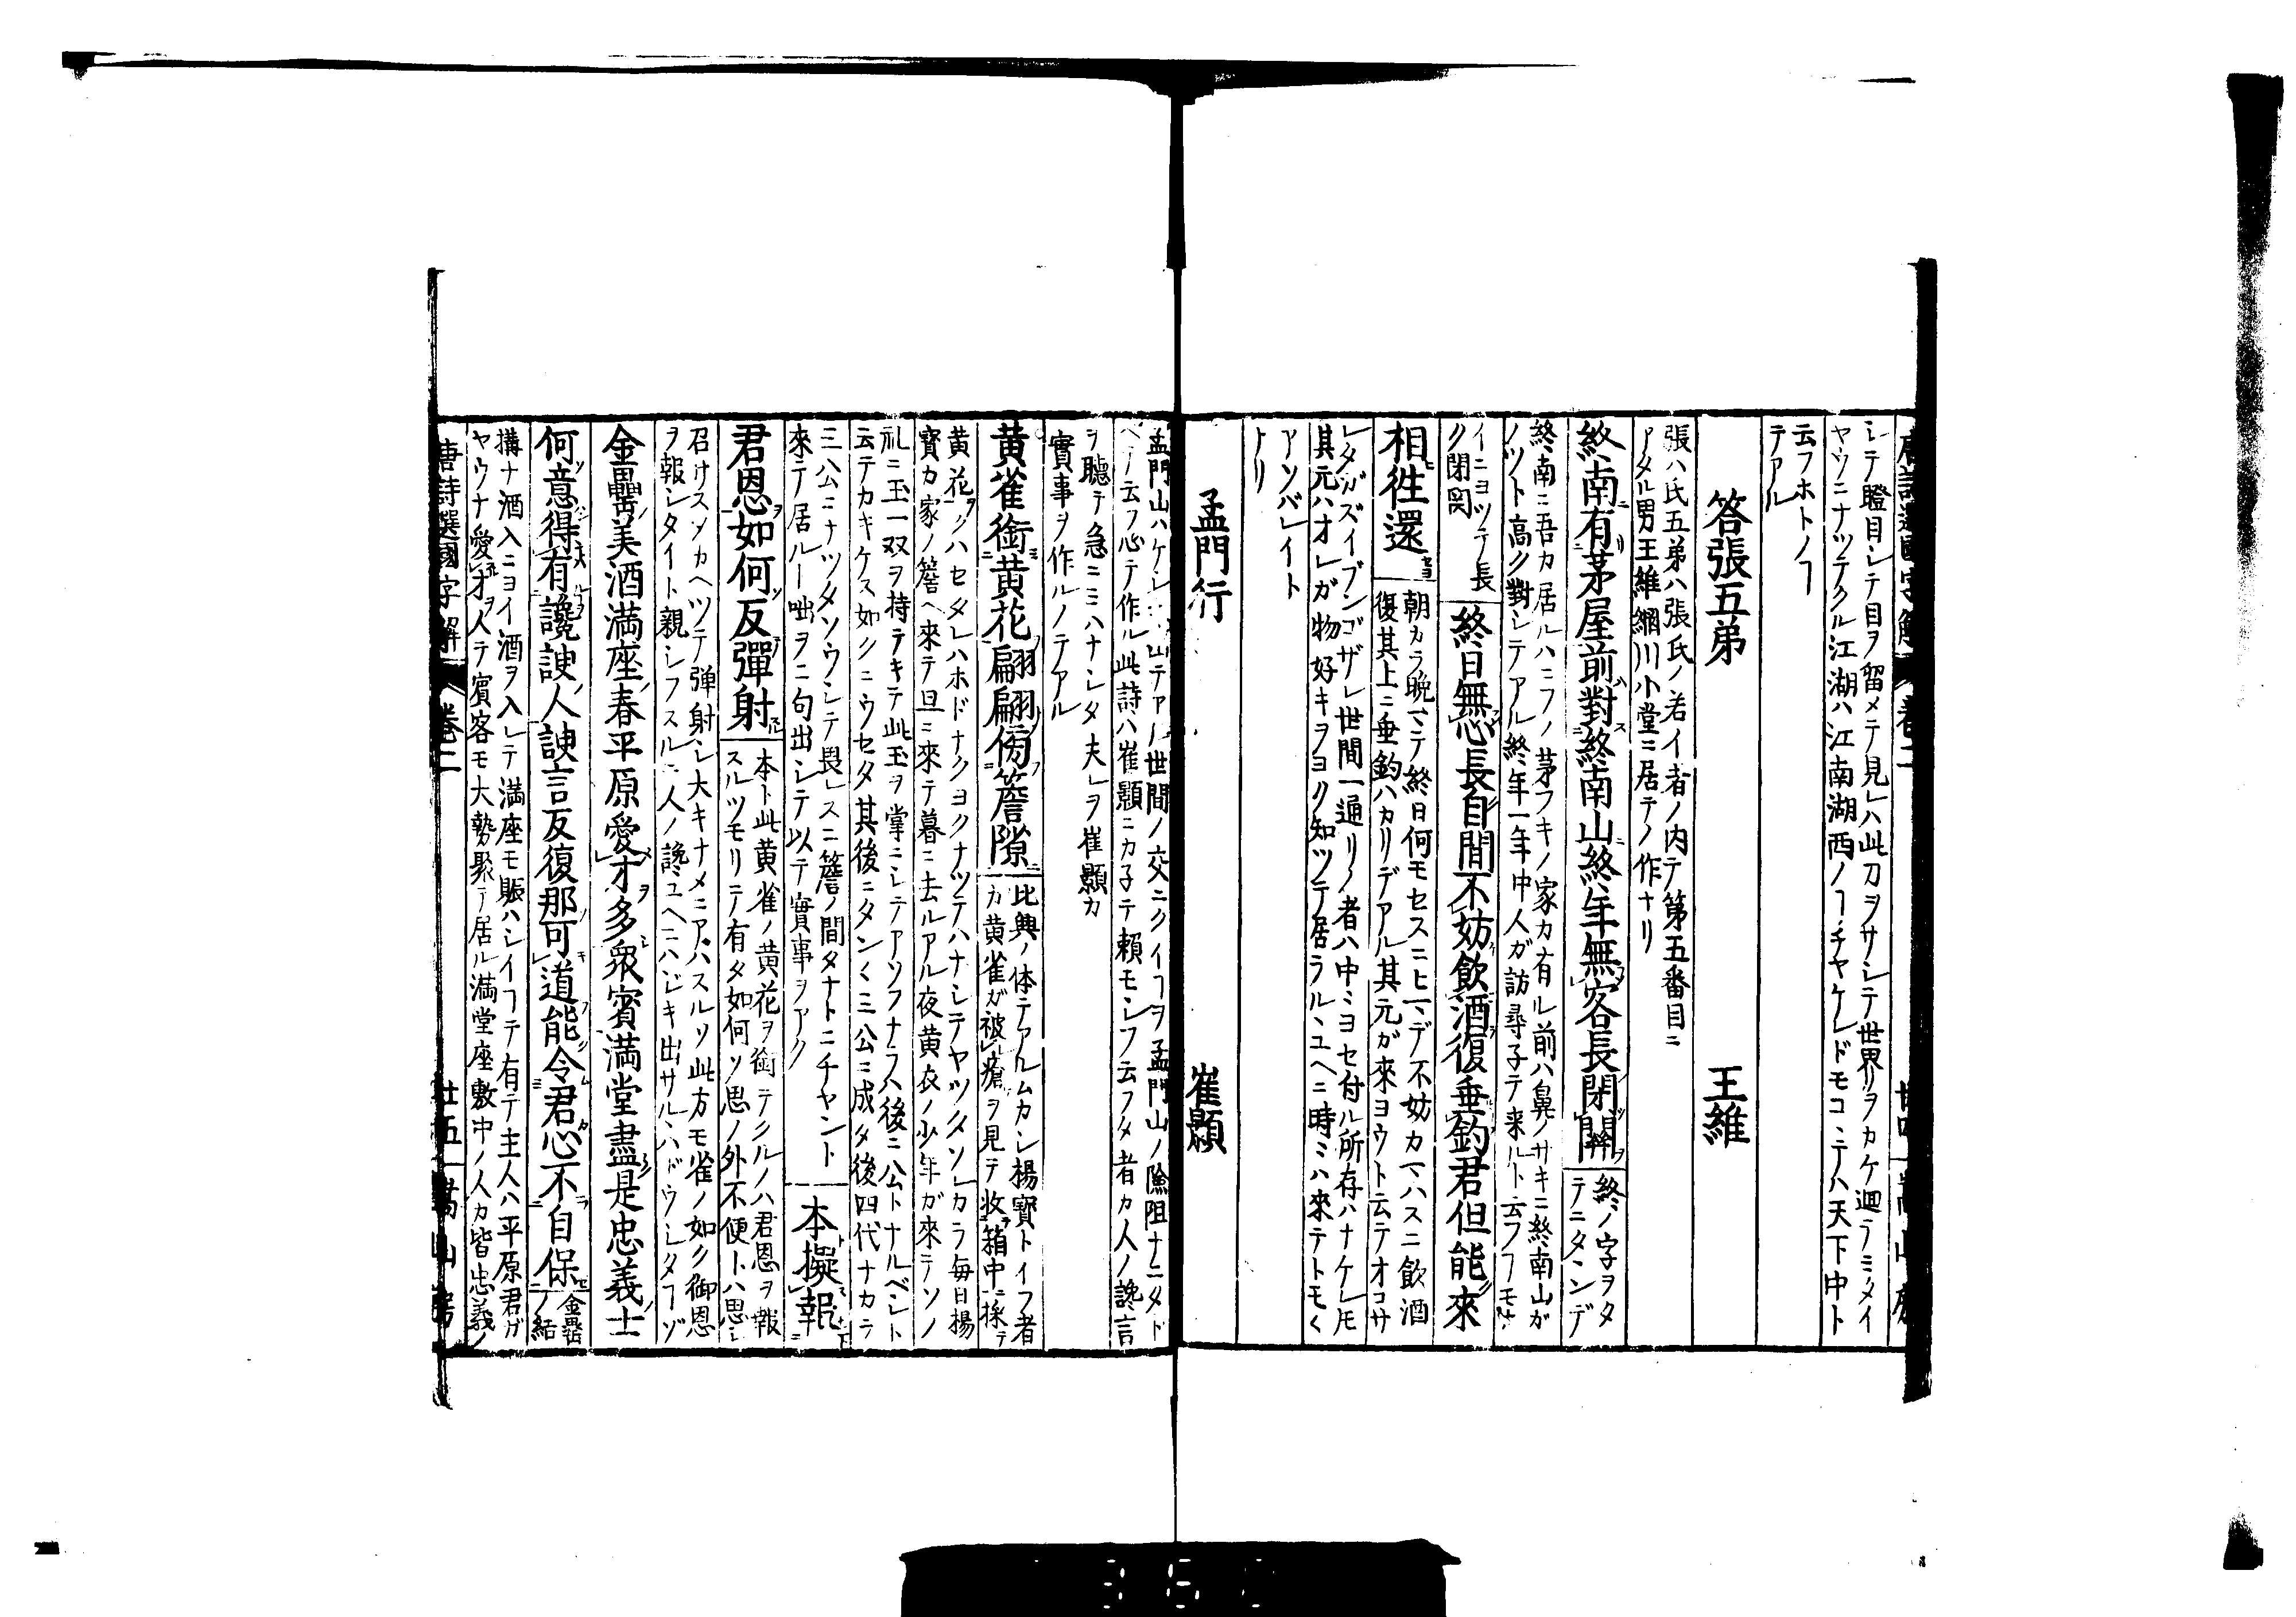 唐詩選國字解 卷二 廿四 嵩山房
シテ瞪目シテ目ヲ留メテ見レハ此刀ヲサシテ世界ヲカケ廻ラミタイ
ヤウニナツテクル江湖ハ江南湖西ノヿチヤケレドモコヽテハ天下中ト
云フホトノヿ
テアル
答張五弟 王維
張ハ氏五弟ハ張氏ノ若イ者ノ内テ第五番目ニ
アタル男王維輞川小堂ニ居テノ作ナリ
終南有茅屋前對終南山終年無客長閉關
終ノ字ヲタ
テニタンデ
終南ニ吾カ居ルハニフノ茅フキノ家カ有ル前ハ鼻ノサキニ終南山ガ
ノツト高ク對シテアル終年一年中人ガ訪尋子テ来ルト云フヿモナ
イニヨツテ長
ク閉関
終日無心長自間不妨飲酒復垂釣君但能來
相徃還
朝カラ晩マテ終日何モセスニヒマデ不妨カマハスニ飲酒
復其上ニ垂釣ハカリデアル其元ガ來ヨウト云テオコサ
レタガズイブンゴザレ世間一通リノ者ハ中ミヨセ付ル所存ハナケレ𪜈
其元ハオレガ物好キヲヨク知ツテ居ラルヽユヘニ時ミハ來テトモく
アソバレイト
ナリ
孟門行 崔顥
孟門山ハケレ山テア世間ノ交ニクイヿヲ孟門山ノ險阻ナニタト
ヘテ云フ心テ作ル此詩ハ崔顥ニカ子テ頼モシフ云フタ者カ人ノ讒言
ヲ聴テ急ニミハナシタ夫レヲ崔顥カ
實事ヲ作ルノテアル
黄雀銜黄花翩翩傍簷隙
比興ノ体テアルムカシ楊寳トイフ者
カ黄雀ガ被瘡ヲ見テ收箱中ニ採テ
黄花ヲクハセタレハホドナクヨクナツテハナシテヤツタソレカラ毎日楊
寳カ家ノ簷ヘ來テ旦ニ來テ暮ニ去ルアル夜黄衣ノ少年ガ來テソノ
礼ニ玉一双ヲ持テキテ此玉ヲ掌ニシテアソフナラハ後ニ公トナルベシト
云テカキケス如クニウセタ其後ニタンく三公ニ成タ後四代ナカラ
三公ニナツタソウシテ畏レスニ簷ノ間タナトニチヤント
來テ居ルー咄ヲ二句出シテ以テ實事ヲアク
本擬報
君恩如何反彈射
本ト此黄雀ノ黄花ヲ銜テクルノハ君恩ヲ報
スルツモリニテ有タ如何ソ思ノ外不便トハ思シ
召ケスソカヘツテ弾射シ大キナメニアハスルソ此方モ雀ノ如ク御恩
ヲ報シタイト親シフスルニ人ノ讒ユヘニハジキ出サルヽハドウシタヿゾ
金罍美酒満座春平原愛才多衆賓満堂盡是忠義士
何意得有讒諛人諛言反復那可道能令君心不自保
金罍
ノ結
搆ナ酒入ニヨイ酒ヲ入レテ満座モ賑ハシイフテ有テ主人ハ平原君ガ
ヤウナ愛才ヲ人テ賓客モ大勢聚テ居ル満堂座敷中ノ人カ皆忠義ノ
唐詩選國字解 卷二 廿五 嵩山房